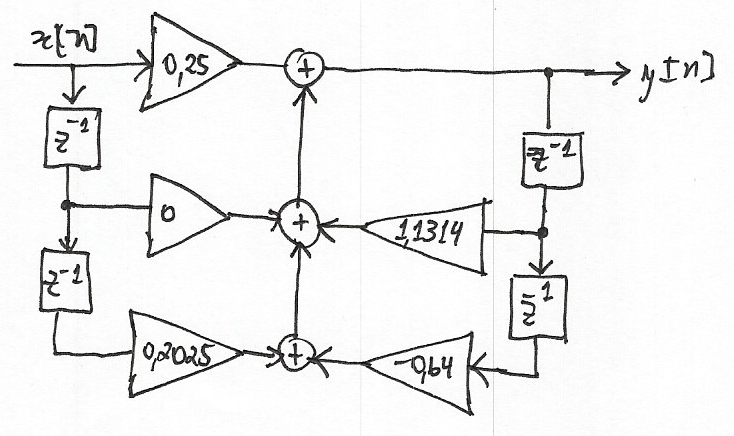 x[n]
0,25
y[n]
z⁻¹
z⁻¹
0
1,1314
z⁻¹
z⁻¹
0,2025
-0,64